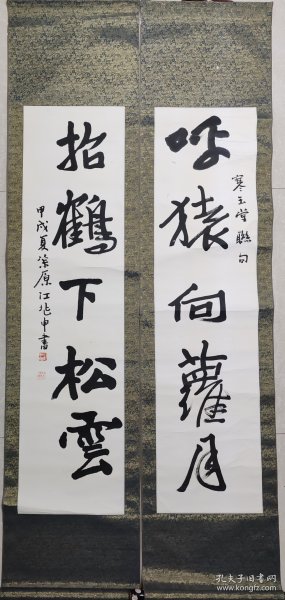 呼猿向蘿月
寒玉堂聯句
招鶴下松雲
甲戌夏
江兆申書
孔夫子旧书网
www.kongfz.com